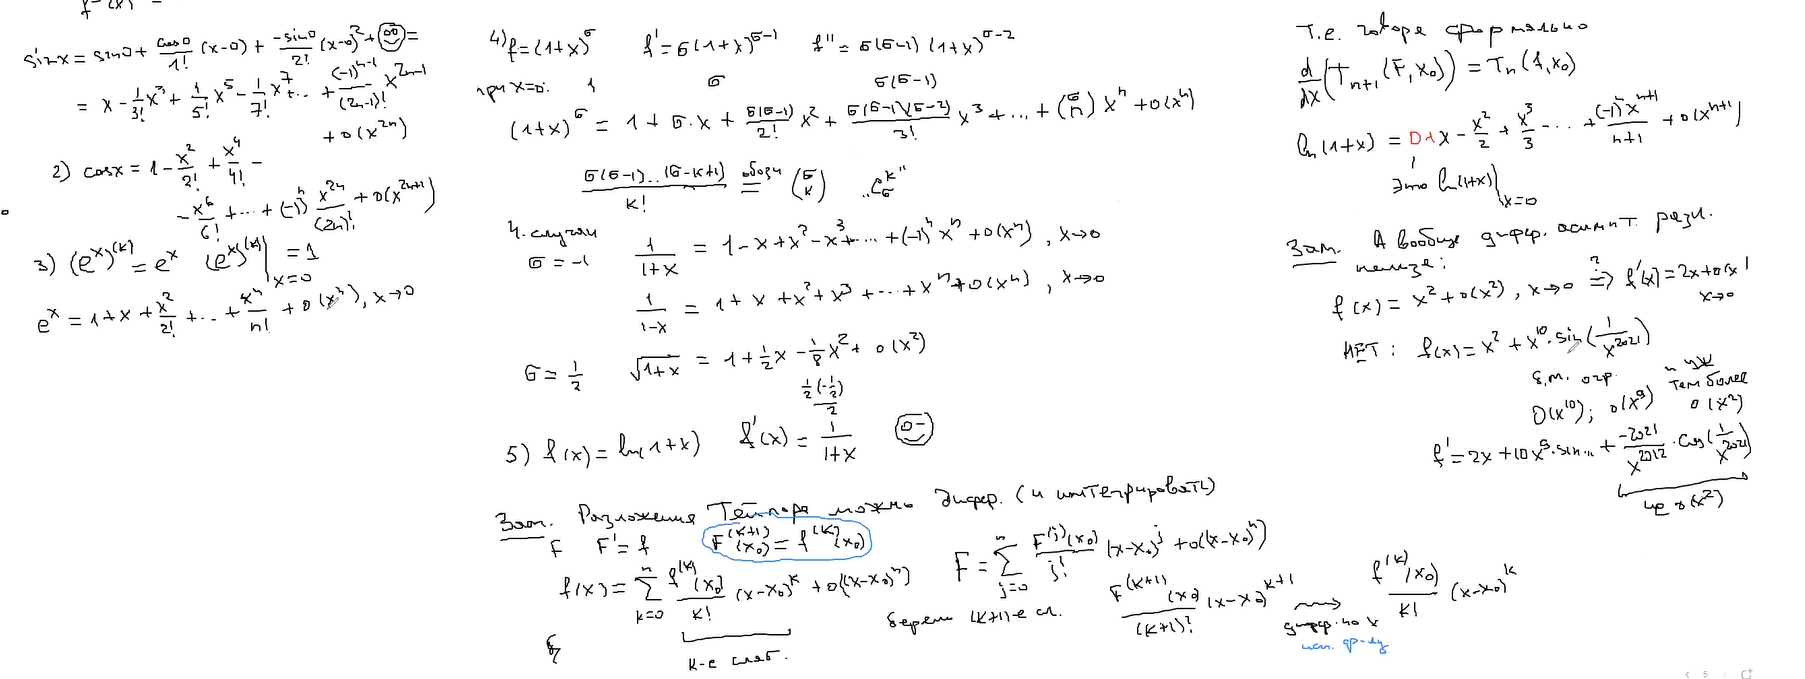 sin x = sin 0 + cos 0/1! (x-0) + -sin 0/2! (x-0)² + =
= x - 1/3! x³ + 1/5! x⁵ - 1/7! x⁷ ... + (-1)ⁿ⁻¹/(2n-1)! x²ⁿ⁻¹
+ o(x²ⁿ)
2) cos x = 1 - x²/2! + x⁴/4! -
- x⁶/6! + ... + (-1)ⁿ x²ⁿ/(2n)! + o(x²ⁿ⁺¹)
3) (eˣ)⁽ᵏ⁾ = eˣ (eˣ)⁽ᵏ⁾|x=0 = 1
eˣ = 1 + x + x²/2! + ... + xⁿ/n! + o(xⁿ), x→0
4) f = (1+x)^σ f' = σ(1+x)^(σ-1) f'' = σ(σ-1)(1+x)^(σ-2)
при x=0: 1 σ σ(σ-1)
(1+x)^σ = 1 + σ·x + σ(σ-1)/2! x² + σ(σ-1)(σ-2)/3! x³ + ... + (σ n) xⁿ + o(xⁿ)
σ(σ-1)..(σ-k+1)/k! обозн = (σ k) „C_σ^k"
Ч. случаи
σ = -1 1/(1+x) = 1 - x + x² - x³ + ... + (-1)ⁿ xⁿ + o(xⁿ), x→0
1/(1-x) = 1 + x + x² + x³ + ... + xⁿ + o(xⁿ), x→0
σ = 1/2 √(1+x) = 1 + 1/2 x - 1/8 x² + o(x²)
1/2(-1/2)/2
5) f(x) = ln(1+x) f'(x) = 1/(1+x)
Зам. Разложения Тейлора можно диффер. (и интегрировать)
F F' = f F⁽ᵏ⁺¹⁾(x₀) = f⁽ᵏ⁾(x₀)
f(x) = Σ k=0 n f⁽ᵏ⁾(x₀)/k! (x-x₀)ᵏ + o((x-x₀)ⁿ)
к-е слаг.
F = Σ j=0 n F⁽ʲ⁾(x₀)/j! (x-x₀)ʲ + o((x-x₀)ⁿ)
берем (k+1)-е сл. F⁽ᵏ⁺¹⁾(x₀)/(k+1)! (x-x₀)ᵏ⁺¹ ⇝ f⁽ᵏ⁾(x₀)/k! (x-x₀)ᵏ
дифф. по x
исп. ф-лу
Т.е. говоря формально
d/dx (Tₙ₊₁(F, x₀)) = Tₙ(f, x₀)
ln(1+x) = 0 + x - x²/2 + x³/3 - ... + (-1)ⁿ xⁿ⁺¹/(n+1) + o(xⁿ⁺¹)
Это ln(1+x)|x=0
Зам. А вообще диффер. асимпт. разл.
нельзя:
f(x) = x² + o(x²), x→0 ?⇒ f'(x) = 2x + o(x)
x→0
НЕТ: f(x) = x² + x¹⁰·sin(1/x²⁰²¹)
б.м. огр. и уж
O(x¹⁰); o(x⁹) тем более
o(x²)
f' = 2x + 10x⁹·sin... + -2021/x²⁰¹² · cos(1/x²⁰²¹)
не o(x²)
5